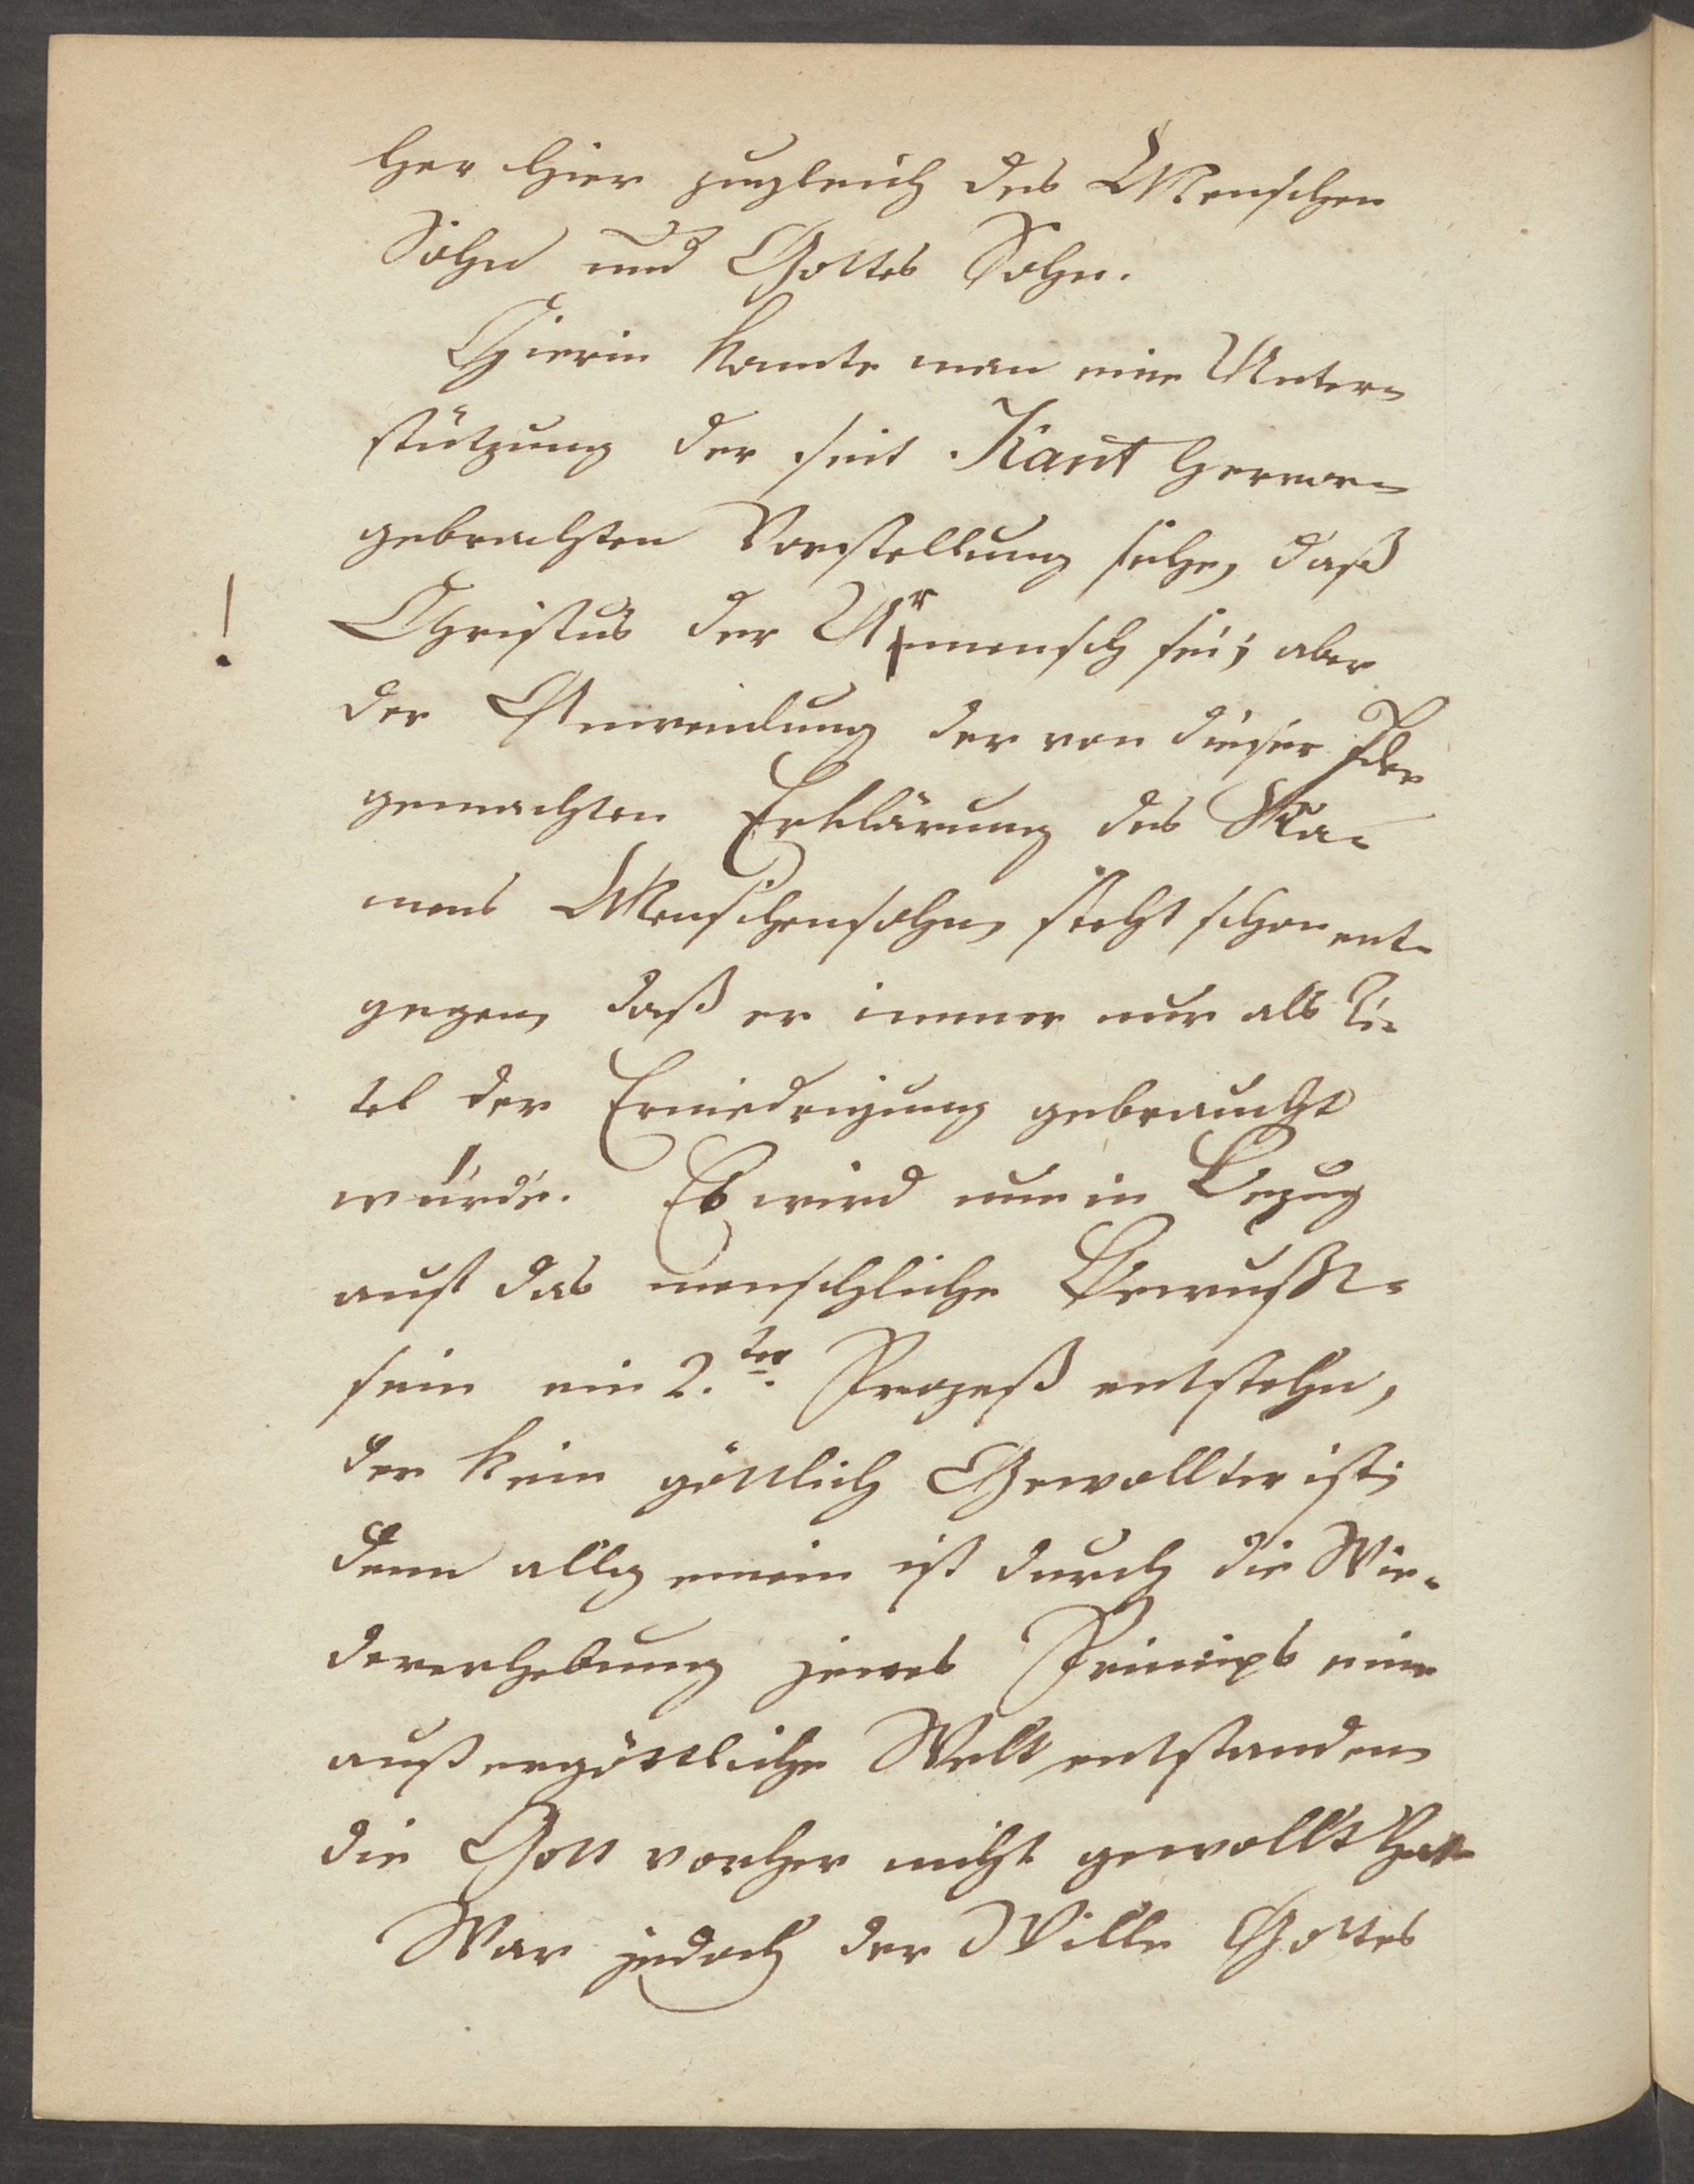 her hier zugleich des Menschen
Sohn und Gottes Sohn.
Hierin konnte man eine Unter-
stützung der seit Kant hervor-
gebrachten Vorstellung sehen, daß
! Christus der Urmensch sei; aber
der Anwendung der von dieser Idee
gemachten Erklärung des Na-
mens Menschensohn, steht schon ent-
gegen, daß er immer nur als Ti-
tel der Erniedrigung gebraucht
würde. Es wird nun in Bezug
auf das menschliche Bewußt-
sein ein 2.ter Prozeß entstehn,
der kein göttlich Gewollter ist;
denn allgemein ist durch die Wie-
dererhebung jenes Princips eine
außergöttliche Welt entstanden
die Gott vorher nicht gewollt hatte
War jedoch der Wille Gottes